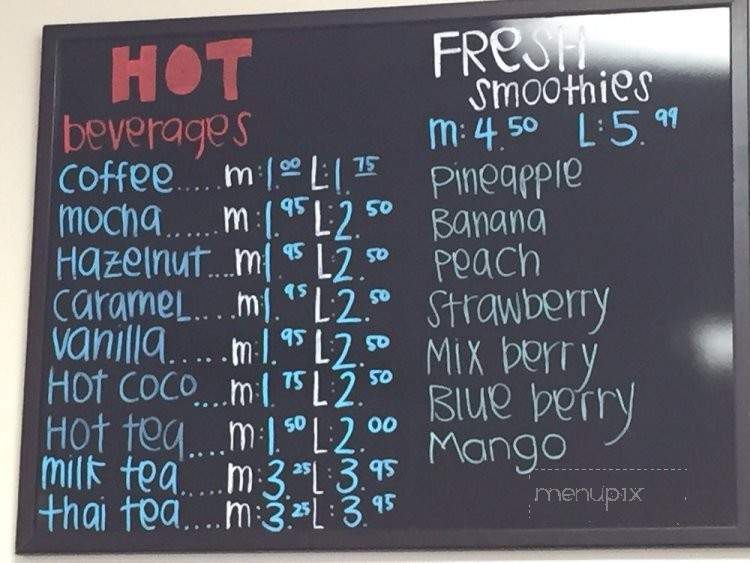 HOT
beverages
coffee.....m:1.00 L:1.75
mocha......m:1.95 L:2.50
Hazelnut....m:1.95 L:2.50
caramel....m:1.95 L:2.50
vanilla......m:1.95 L:2.50
Hot coco....m:1.75 L:2.50
Hot tea....m:1.50 L:2.00
milk tea.....m:3.25 L:3.95
thai tea.....m:3.25 L:3.95
FResH
smoothies
m:4.50 L:5.99
Pineapple
Banana
Peach
Strawberry
Mix berry
Blue berry
Mango
menupix